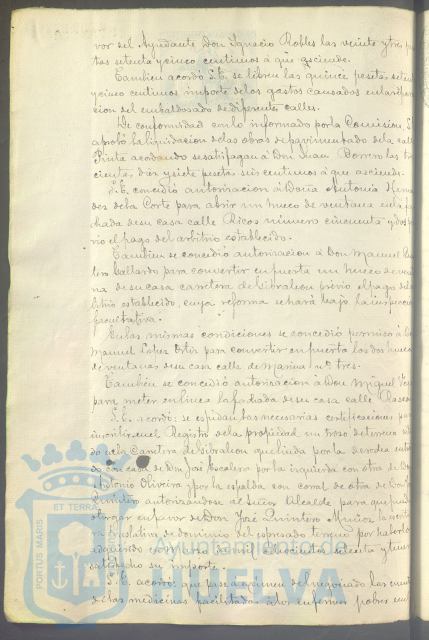 vor del Ayudante Don Ignacio Robles las veinte y tres pe
tas setenta y cinco centimos á que asciende.
Tambien acordó S.E. se libren las quince pesetas seten
y cinco centimos importe de los gastos causados en la
cion del embaldosado de diferentes calles.
De conformidad con lo informado por la Comision, S.
aprobó la liquidacion de las obras de pavimentado de la calle
acordando se satisfagan á Don Juan Borrero las
cientas diez y siete pesetas seis centimos á que asciende.
S.E. concedió autorizacion á Doña Antonia
dez de la Corte para abrir un hueco de ventana en la fa
chada de su casa calle Ricos número cincuenta y dos
vio el pago del arbitrio establecido.
Tambien se concedió autorizacion á Don Manuel
Gallardo para convertir en puerta un hueco de
na de su casa carretera de Gibraleon previo el pago del
bitrio establecido, cuya reforma se hará bajo la inspeccion
facultativa.
En las mismas condiciones se concedió permiso á
Manuel Lopez Ortiz para convertir en puerta los dos huecos
de ventanas de su casa calle de Marina nº tres.
Tambien se concedió autorizacion á Don Miguel
para meter en linea la fachada de su casa calle
S.E. acordó: se espidan las necesarias certificaciones para
inscribir en el Registro de la propiedad un trozo de terreno
do en la Carretera de Gibraleon que linda por la derecha
do con casa de Don José Escalera por la izquierda con otra de Don
Antonio Oliveira y por la espalda con corral de otra de Don
Quintero autorizándose al Señor Alcalde para que pueda
otorgar en favor de Don José Quintero Muñoz la
traslativa de dominio del espresado terreno por haberlo
adquirido en de mil ochocientos setenta y
satisfecho su importe.
S.E. acordó: que pase á examen del negociado las cuentas
de las medicinas facilitadas á los enfermos pobres
PORTUS MARIS
ET TERRÆ
Ayuntamiento de
HUELVA